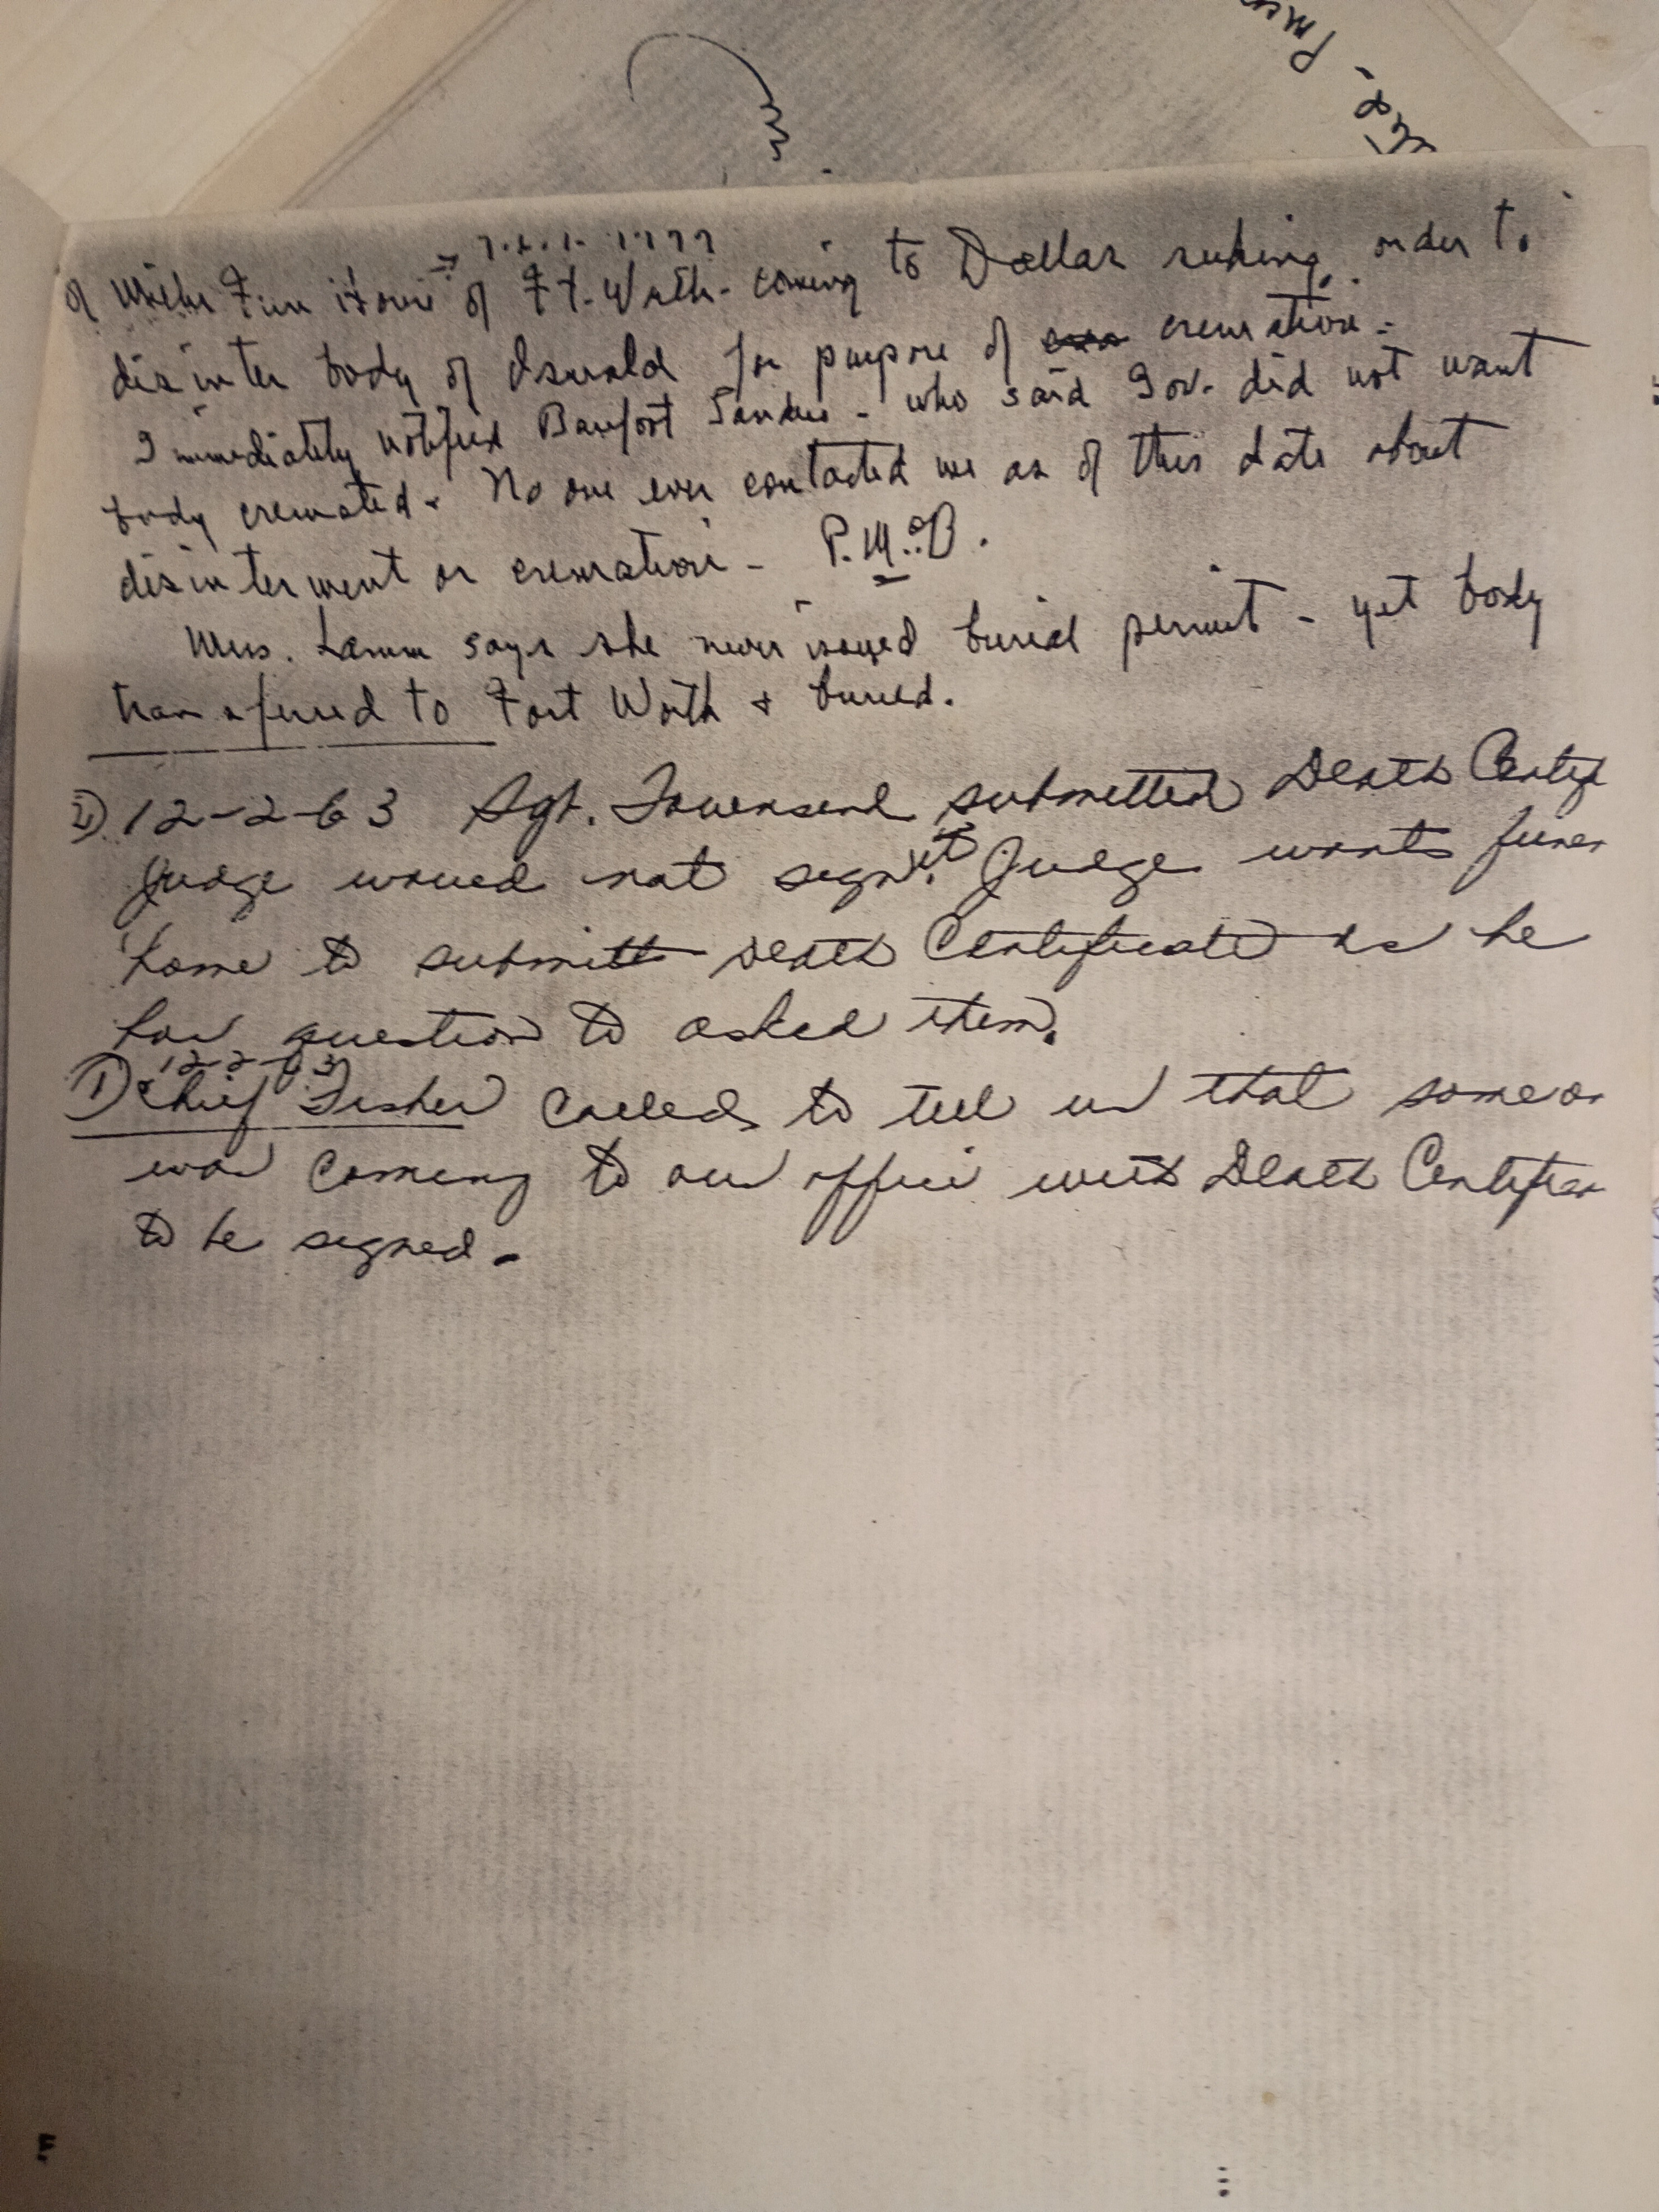 of Miller Fun Home of Ft. Worth - coming to Dallas seeking order to
disinter body of Oswald for purpose of cremation -
Immediately notified Barefoot Sanders - who said Gov. did not want
body cremated. No one ever contacted me as of this date about
disinterment or cremation - P.McB.
Mrs. Lamm says she never issued burial permit - yet body
transferred to Fort Worth & buried.
2) 12-2-63 Sgt. Townsend submitted Death Certif
Judge would not sign it. Judge wants funer
home to submitt Death Certificate as he
has question to asked them.
12-2-63
1) Chief Fisher called to tell us that someon
was coming to our office with Death Certifica
to be signed.